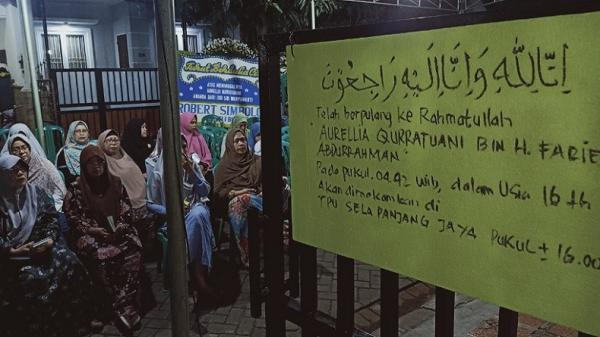 إِنَّا لِلّٰهِ وَإِنَّا إِلَيْهِ رَاجِعُوْنَ
Telah berpulang ke Rahmatullah
"AURELLIA QURRATUAINI BIN H. FARIE
ABDURRAHMAN"
Pada pukul. 04.42 wib, dalam usia 16 th
Akan dimakamkan di
TPU SELAPANJANG JAYA PUKUL ± 16.00
Turut Berduka Cita
ATAS MENINGGALNYA
ROBERT SIMBOLO